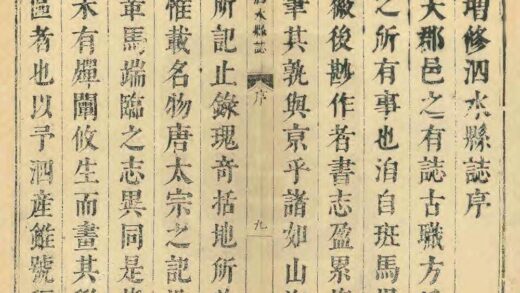 增修泗水縣誌序
夫郡邑之有誌古職方
之所有事也洎自班馬
微後尠作者書志盈累
筆其孰與京乎諸如山
泗水縣誌 序 九
所記止錄瑰奇括地所
惟載名物唐太宗之記
章馬端臨之志異同是
未有燀闡攸生而畫其
區者也以予泗產雖號